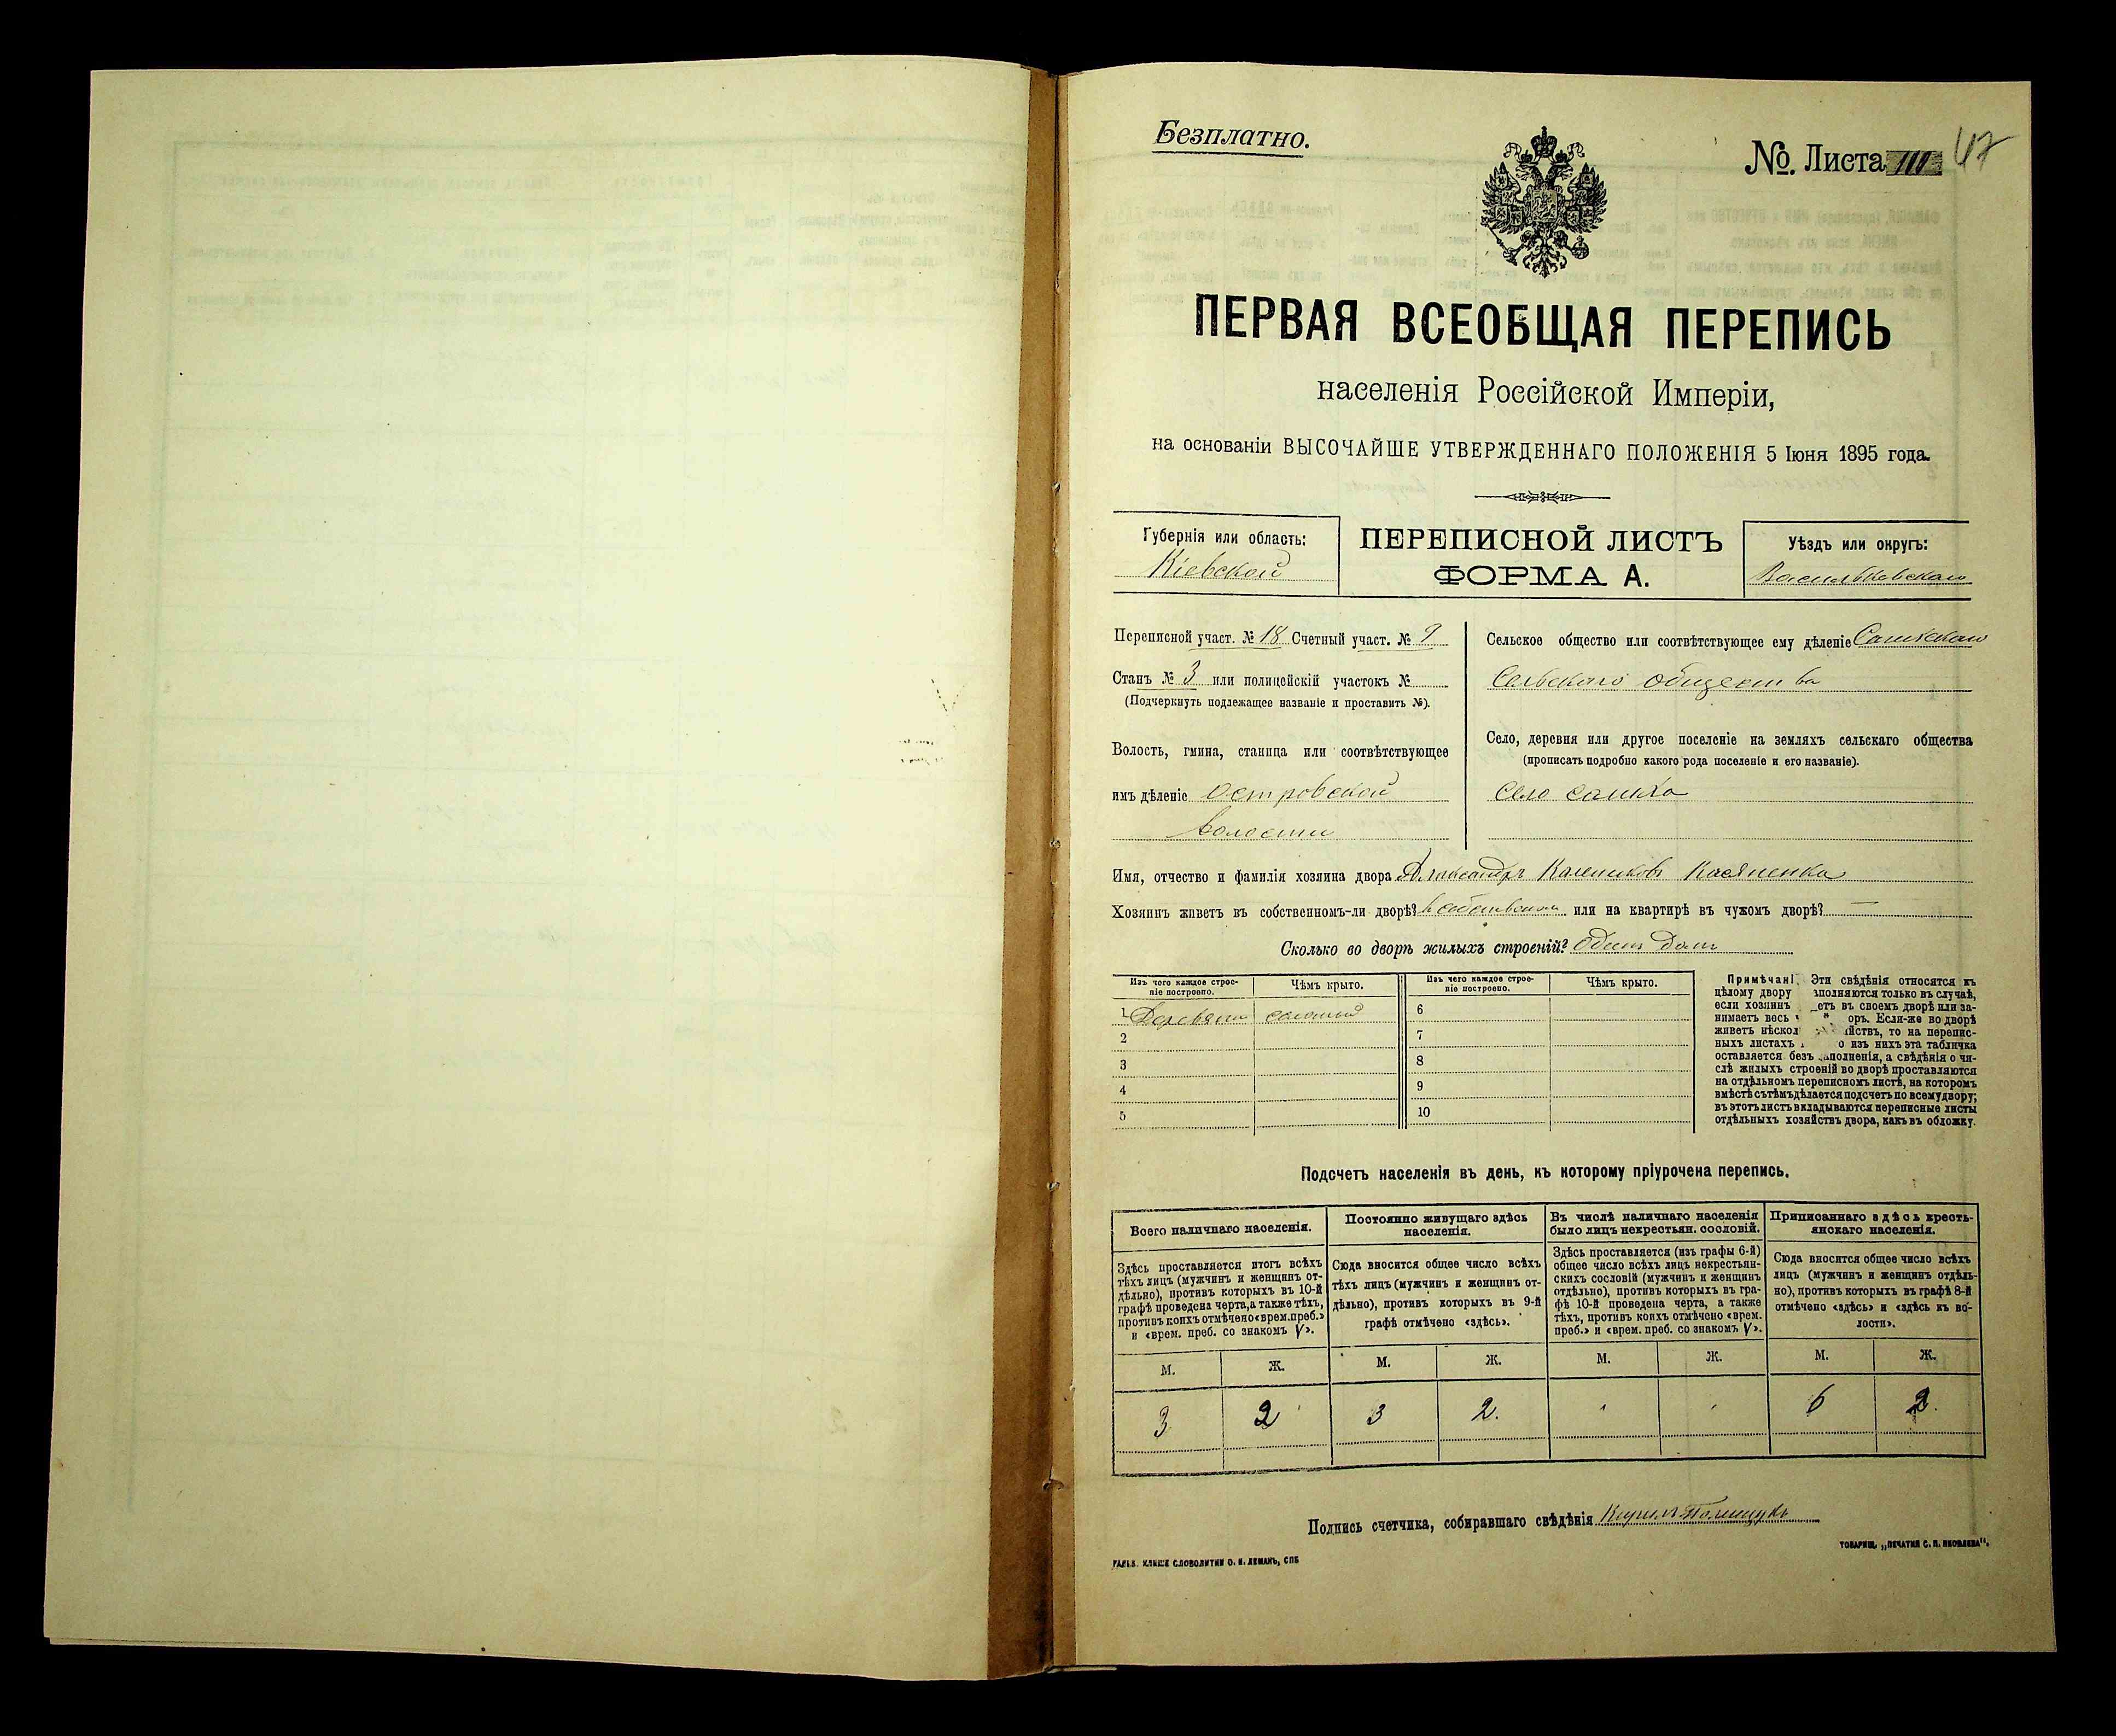 Безплатно.
№. Листа 47
ПЕРВАЯ ВСЕОБЩАЯ ПЕРЕПИСЬ
населенія Россійской Имперіи,
на основаніи ВЫСОЧАЙШЕ УТВЕРЖДЕННАГО ПОЛОЖЕНІЯ 5 Іюня 1895 года.
Губернія или область:
Кіевской
ПЕРЕПИСНОЙ ЛИСТЪ
ФОРМА А.
Уѣздъ или округъ:
Васильковскаго
Переписной участ. № 18 Счетный участ. № 9
Станъ № 3 или полицейскій участокъ №
(Подчеркнуть подлежащее названіе и проставить №).
Волость, гмина, станица или соотвѣтствующее
имъ дѣленіе Островской
волости
Сельское общество или соотвѣтствующее ему дѣленіе
Сельскаго общества
Село, деревня или другое поселеніе на земляхъ сельскаго общества
(прописать подробно какого рода поселеніе и его названіе).
Село
Имя, отчество и фамилія хозяина двора Александръ Касяненко
Хозяинъ живетъ въ собственномъ-ли дворѣ? или на квартирѣ въ чужомъ дворѣ? —
Сколько во дворѣ жилыхъ строеній? Одинъ домъ
Изъ чего каждое строе-
ніе построено.
Чѣмъ крыто.
Изъ чего каждое строе-
ніе построено.
Чѣмъ крыто.
1 соломой
2
3
4
5
6
7
8
9
10
Примѣчані Эти свѣдѣнія относятся къ
цѣлому двору аполняются только въ случаѣ,
если хозяинъ етъ въ своемъ дворѣ или за-
нимаетъ весь оръ. Если-же во дворѣ
живетъ нѣскол йствъ, то на перепис-
ныхъ листахъ о изъ нихъ эта табличка
оставляется безъ аполненія, а свѣдѣнія о чи-
слѣ жилыхъ строеній во дворѣ проставляются
на отдѣльномъ переписномъ листѣ, на которомъ
вмѣстѣ съ тѣмъ дѣлается подсчетъ по всему двору;
въ этотъ листъ вкладываются переписные листы
отдѣльныхъ хозяйствъ двора, какъ въ обложку.
Подсчетъ населенія въ день, къ которому пріурочена перепись.
Всего наличнаго населенія.
Здѣсь проставляется итогъ всѣхъ
тѣхъ лицъ (мужчинъ и женщинъ от-
дѣльно), противъ которыхъ въ 10-й
графѣ проведена черта, а также тѣхъ,
противъ коихъ отмѣчено «врем. преб.»
и «врем. преб. со знакомъ V».
Постоянно живущаго здѣсь
населенія.
Сюда вносится общее число всѣхъ
тѣхъ лицъ (мужчинъ и женщинъ от-
дѣльно), противъ которыхъ въ 9-й
графѣ отмѣчено «здѣсь».
Въ числѣ наличнаго населенія
было лицъ некрестьян. сословій.
Здѣсь проставляется (изъ графы 6-й)
общее число всѣхъ лицъ некрестьян-
скихъ сословій (мужчинъ и женщинъ
отдѣльно), противъ которыхъ въ гра-
фѣ 10-й проведена черта, а также
тѣхъ, противъ коихъ отмѣчено «врем.
преб.» и «врем. преб. со знакомъ V».
Приписаннаго здѣсь кресть-
янскаго населенія.
Сюда вносится общее число всѣхъ
лицъ (мужчинъ и женщинъ отдѣль-
но), противъ которыхъ въ графѣ 8-й
отмѣчено «здѣсь» и «здѣсь къ во-
лости».
М. Ж. М. Ж. М. Ж. М. Ж.
3 2 3 2. 6 2.
Подпись счетчика, собиравшаго свѣдѣнія
ГАЛЬВ. КЛИШЕ СЛОВОЛИТНИ О. И. ЛЕМАНЪ, СПБ
ТОВАРИЩ. „ПЕЧАТНЯ С. П. ЯКОВЛЕВА".